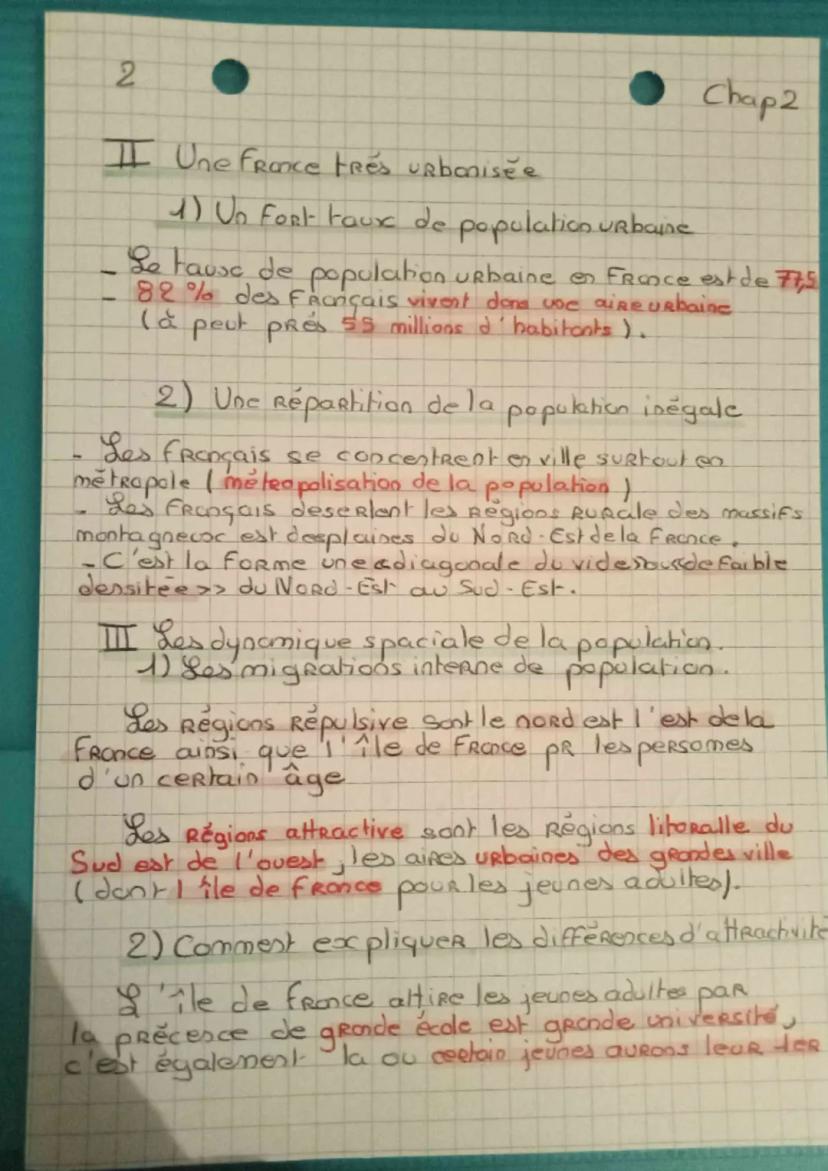 2
Chap2
II Une France trés urbanisée
1) Un Fort taux de population urbaine
- Le taux de population urbaine en France est de 77,5
- 82 % des Français vivent dans une aire urbaine
(à peut prés 55 millions d'habitants).
2) Une Répartition de la population inégale
- Les français se concentrent en ville surtout en
métropole (métropolisation de la population)
- Les Français desertent les Régions Rurale des massifs
montagneux est des plaines du Nord-Est de la France.
- C'est la forme une « diagonale du vide ou de faible
densitée >> du Nord-Est au Sud-Est.
III Les dynamique spaciale de la population.
1) Les migrations interne de population.
Les Régions Répulsive sont le nord est l'est de la
France ainsi que l'île de France pR les personnes
d'un certain âge
Les Régions attractive sont les Régions litoralle du
Sud est de l'ouest, les aires urbaines des grandes ville
(dont l île de france pour les jeunes adultes).
2) Comment expliquer les différences d'attractivité
L'île de france attire les jeunes adultes par
la précence de grande école est grande université,
c'est également la ou certain jeunes aurons leur 1er